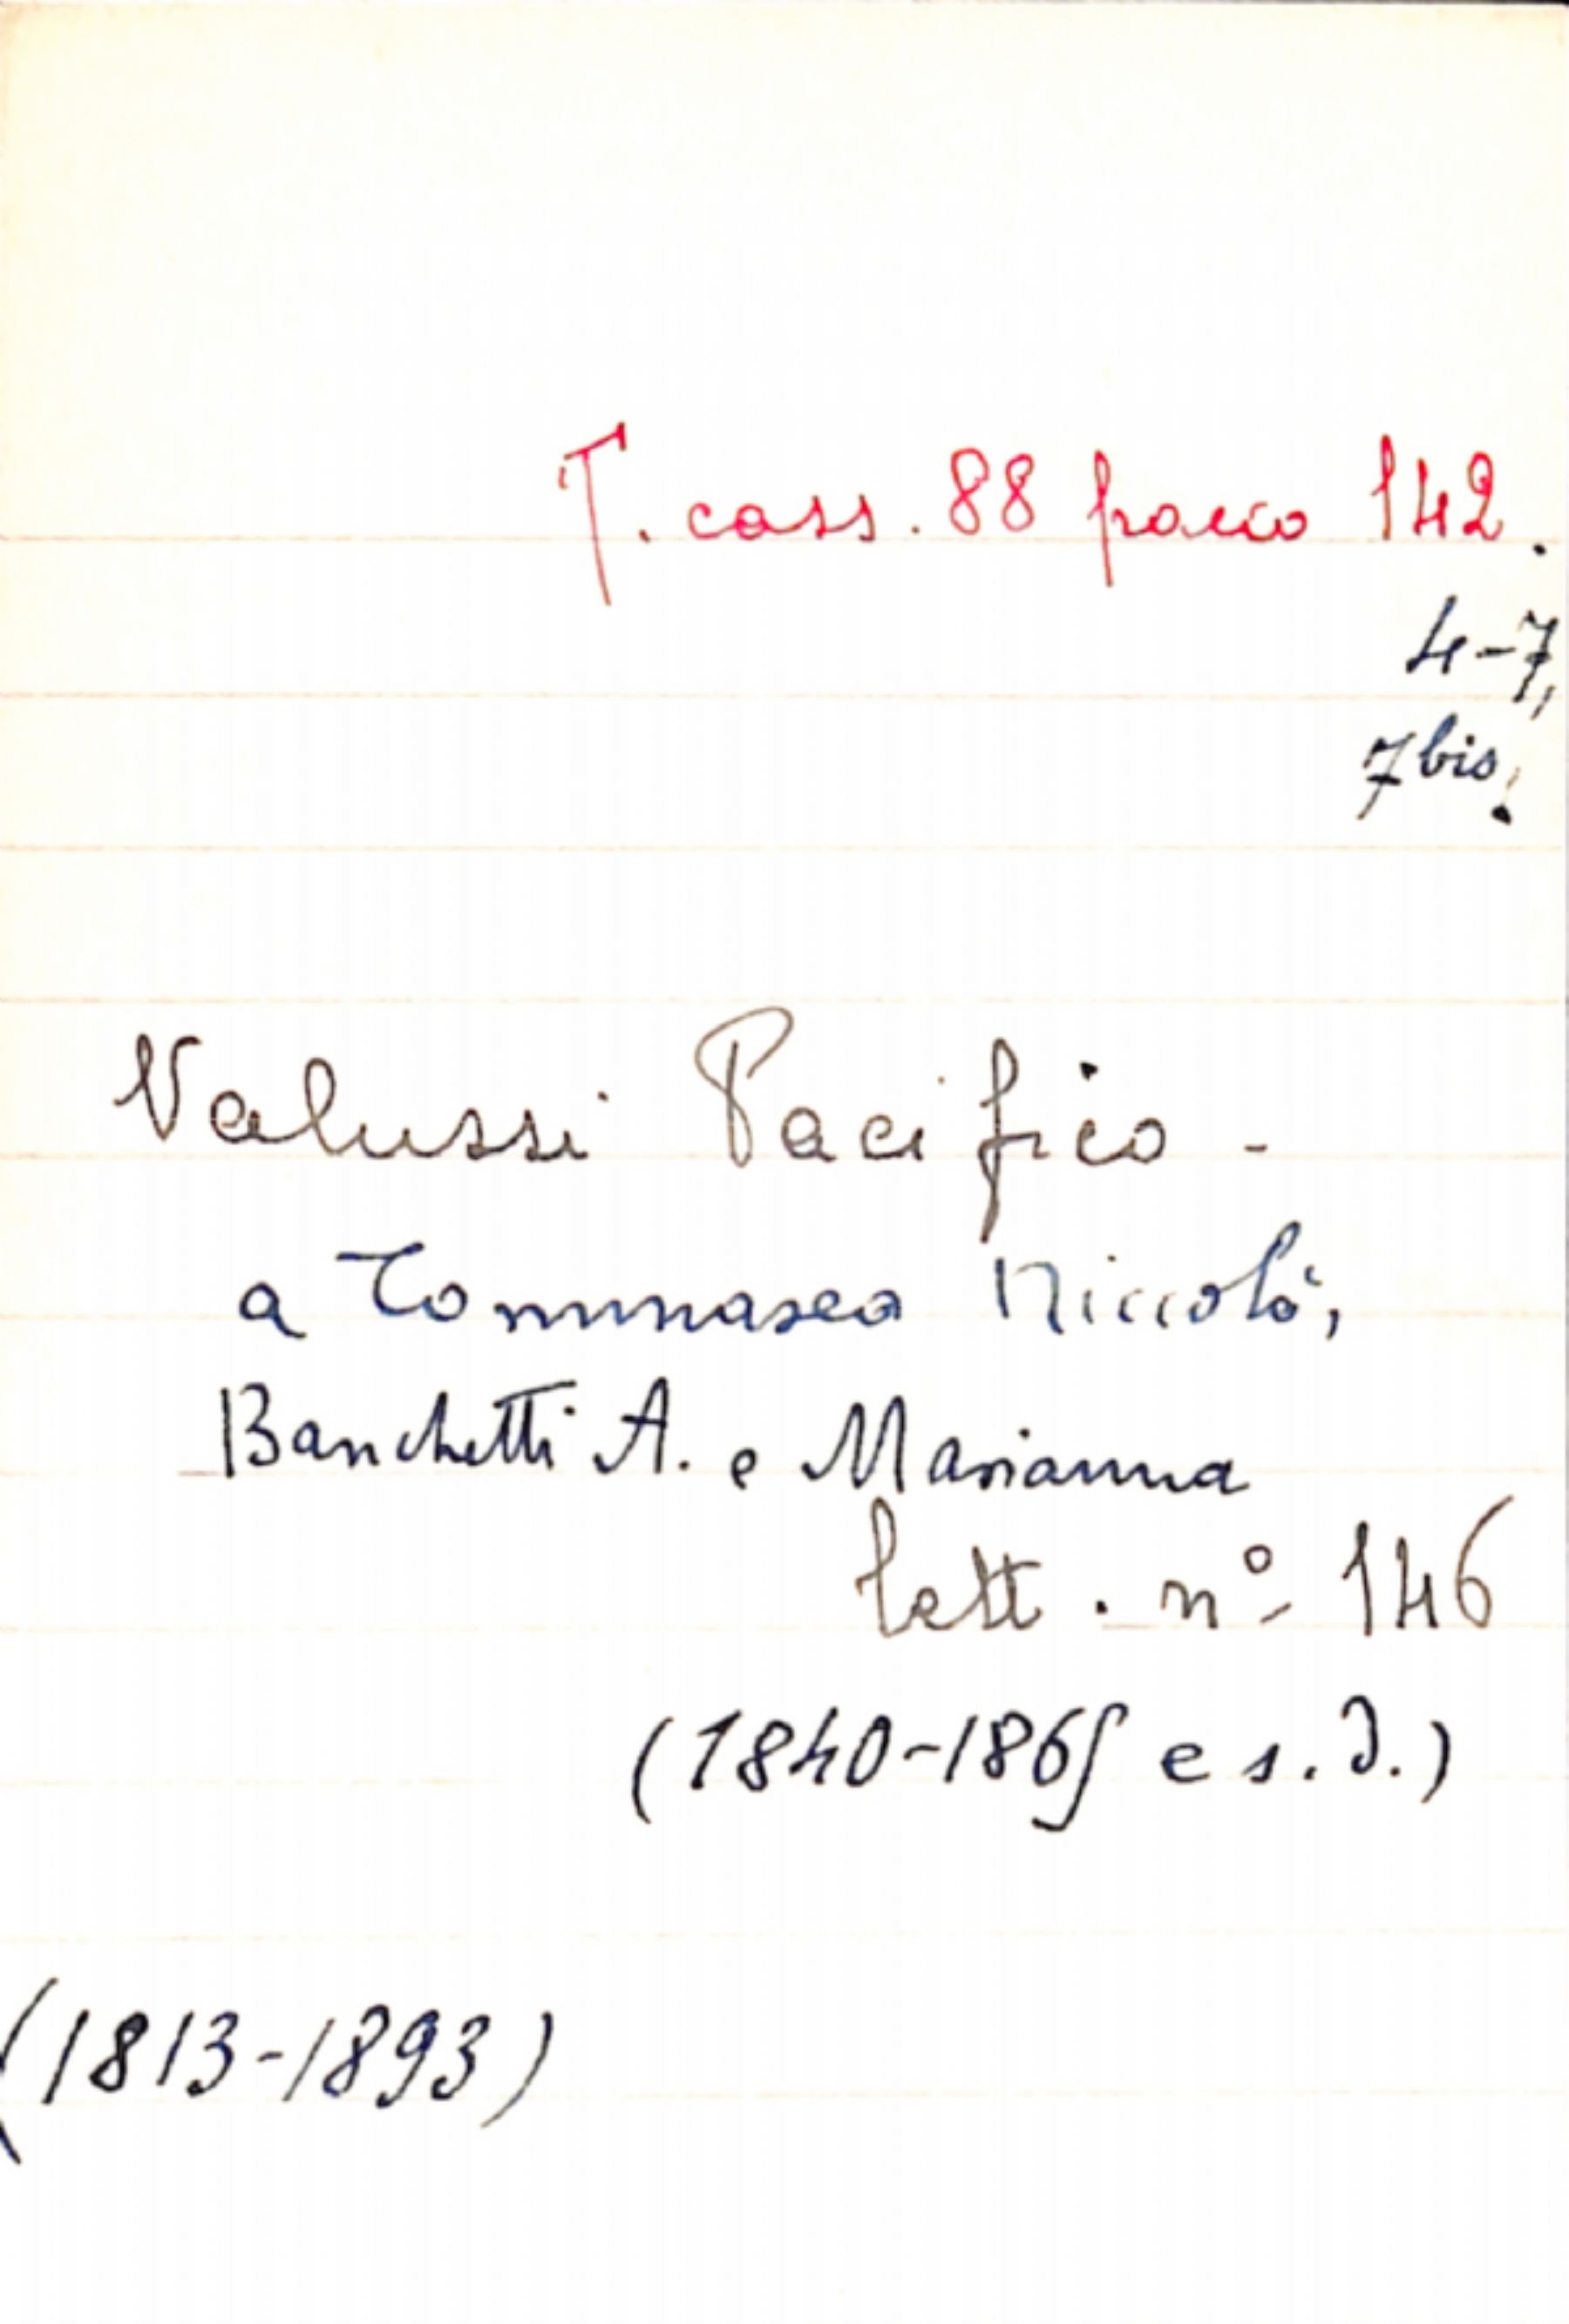 T. cass. 88 pacco 142.
4-7,
7 bis.
Valussi Pacifico -
a Tommaseo Niccolò,
Banchetti A. e Marianna
lett. nº 146
(1840-1865 e s.d.)
(1813-1893)